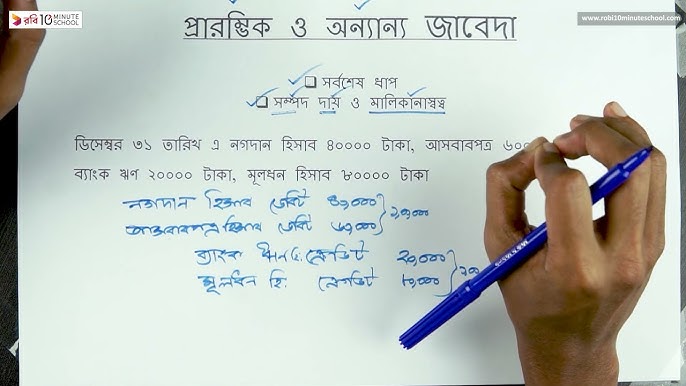 রবি 10 MINUTE SCHOOL
www.robi10minuteschool.com
প্রারম্ভিক ও অন্যান্য জাবেদা
সর্বশেষ ধাপ
সম্পদ দায় ও মালিকানাস্বত্ব
ডিসেম্বর ৩১ তারিখ এ নগদান হিসাব ৪০০০০ টাকা, আসবাবপত্র ৬০০
ব্যাংক ঋণ ২০০০০ টাকা, মূলধন হিসাব ৮০০০০ টাকা
নগদান হিসাব ডেবিট ৪০,০০০
আসবাবপত্র হিসাব ডেবিট ৬০,০০০ ১,০০,০০০
ব্যাংক ঋন হি. ক্রেডিট ২০,০০০
মূলধন হি. ক্রেডিট ৮০,০০০